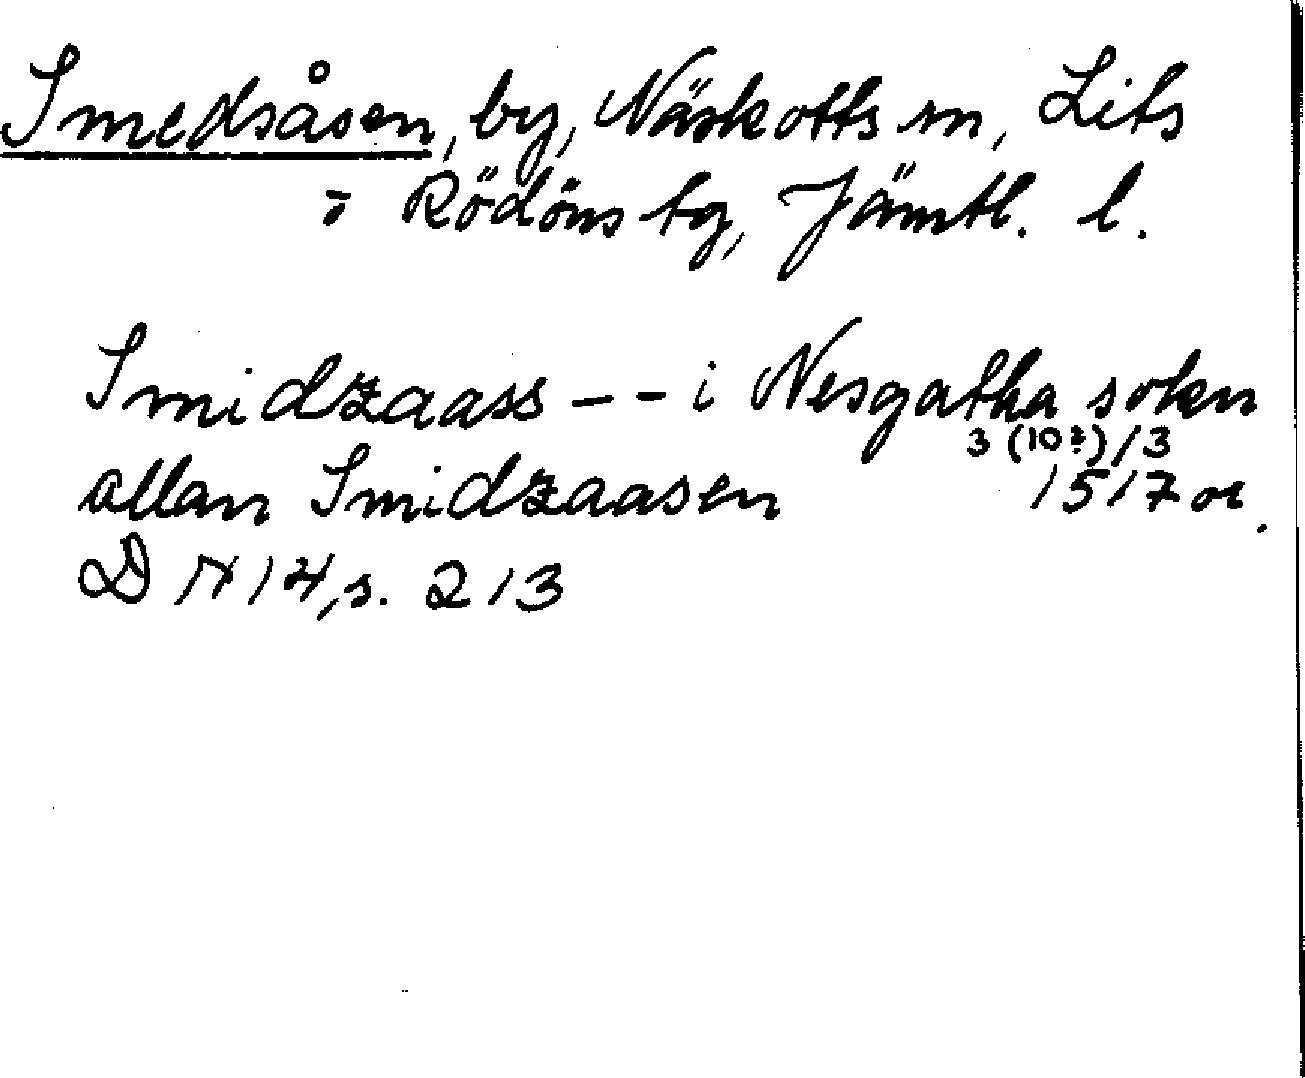 Smedsåsen, by, Näskotts sn, Lits
o Rödöns tg, Jämtl. l.
Smidzaass - - i Nesgatha sokn
3 (10?)/3
allan Smidzaasen 1517 or.
DN 14, s. 213